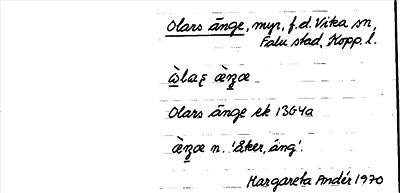 Olars änge, myr, f.d. Vika sn,
Falu stad, Kopp. l.
ὼlaꞩ æ̀nʒæ
Olars änge ek 13G4a
æ̀nʒæ n. 'åker, äng'.
Margareta Andér 1970